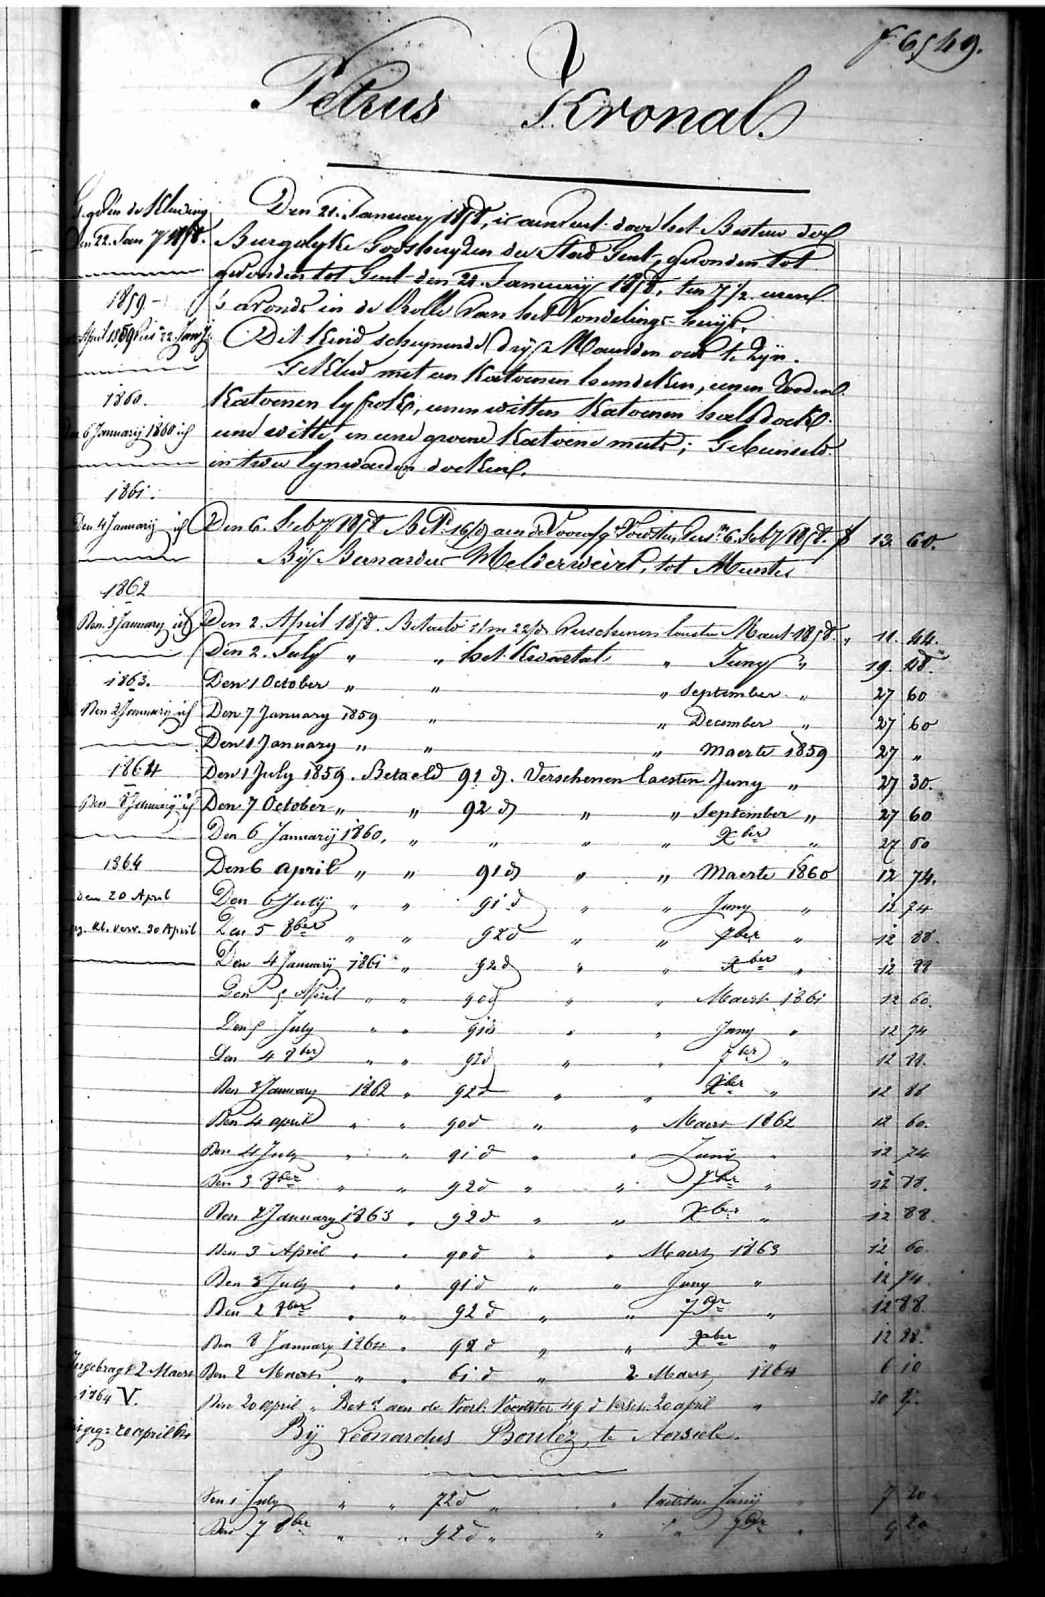 f 6549.
Petrus Kronal.
Gegeven de Kleeding
den 22. Jan 7 1858.
1859
April 1859
1860.
6 January 1860
1861.
Den 4 January
1862
Den 3 January
1863.
Den 2 January
1864
Den 8 January
1864
den 20 April
Kl. verv. 30 April
Den 21. January 1858, is aenveert door het Bestuer der
Burgelyke Godshuyzen der Stad Gent, gevonden tot
gevonden tot Gent den 21. January 1858, ten 7 1/2 uren
's avonds in de Rolle van het Vondelings-huys.
Dit Kind schynende dry Maenden oud te zyn.
Gekleed met een Katoenen hemdeken, eenen Rooden
Katoenen lyfrok, eenen witten Katoenen halsdoek
eene witte, en eene groene Katoene muts; Gebunseld
in twee lynwaeden doeken.
Den 6. Feb 7 1858 Bet. 16/d aen de Voorsz. Voedster, 6. Feb 7 1858. f 13. 60.
By Bernardus Melderweirt, tot Munte
Den 2. April 1858. Betaeld verschenen laesten Maert 1858. " 11. 44.
Den 2. July " " het Kwartael " Juny " 19. 48.
Den 1 October " " " September " 27 60
Den 7 January 1859 " " December " 27 60
Den 1 January " " " Maerte 1859 27 "
Den 1 July 1859. Betaeld 91 d. Verschenen laesten Juny " 27 30.
Den 7 October " " 92 d " " September " 27 60
Den 6 January 1860, " " " " Xber " 27 60
Den 6 april " " 91 d " " Maerte 1860 12 74.
Den 6 July " " 91 d " " Juny " 12 74
Den 5 8ber " " 92 d " " 7ber " 12 88.
Den 4 January 1861 " 92 d " " Xber " 12 88
Den 5 April " " 90 d " " Maert 1861 12 60.
Den 5 July " " 91 d " " Juny " 12 74
Den 4 8ber " " 92 d " " 7ber " 12 88.
Den 3 January 1862 " 92 d " " Xber " 12 88
Den 4 april " " 90 d " " Maert 1862 12 60.
Den 4 July " " 91 d " " Juny " 12 74
Den 3 8ber " " 92 d " " 7ber " 12 88.
Den 2 January 1863 " 92 d " " Xber " 12 88.
Den 3 April " " 90 d " " Maert 1863 12 60.
Den 3 July " " 91 d " " Juny " 12 74.
Den 2 8ber " " 92 d " " 7ber " 12 88
Den 8 January 1864 " 92 d " " Xber " 12 88.
Ingebragt 2 Maert Den 2 Maert " " 61 d " 2 Maert 1864 6 10
1864 V. Den 20 april " Bet d aen de Voorl. Voedster 49 d versch. 20 april " 30
20 april 64 By Leonardus Boulez, te Aorsele.
Den 1 July " " 72 d " " laetsten Juny " 7 20
Den 7 8ber " " 92 d " " " 7ber " 9 20